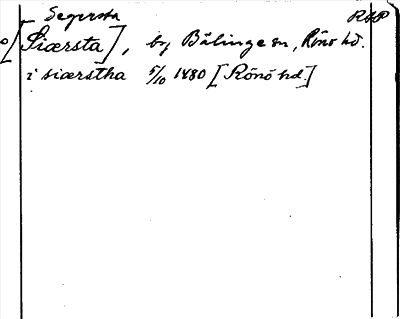 Segersta RAP
[Siærsta], by Bälinge sn, Rönö hd.
i siærstha 5/10 1480 [Rönö hd.]